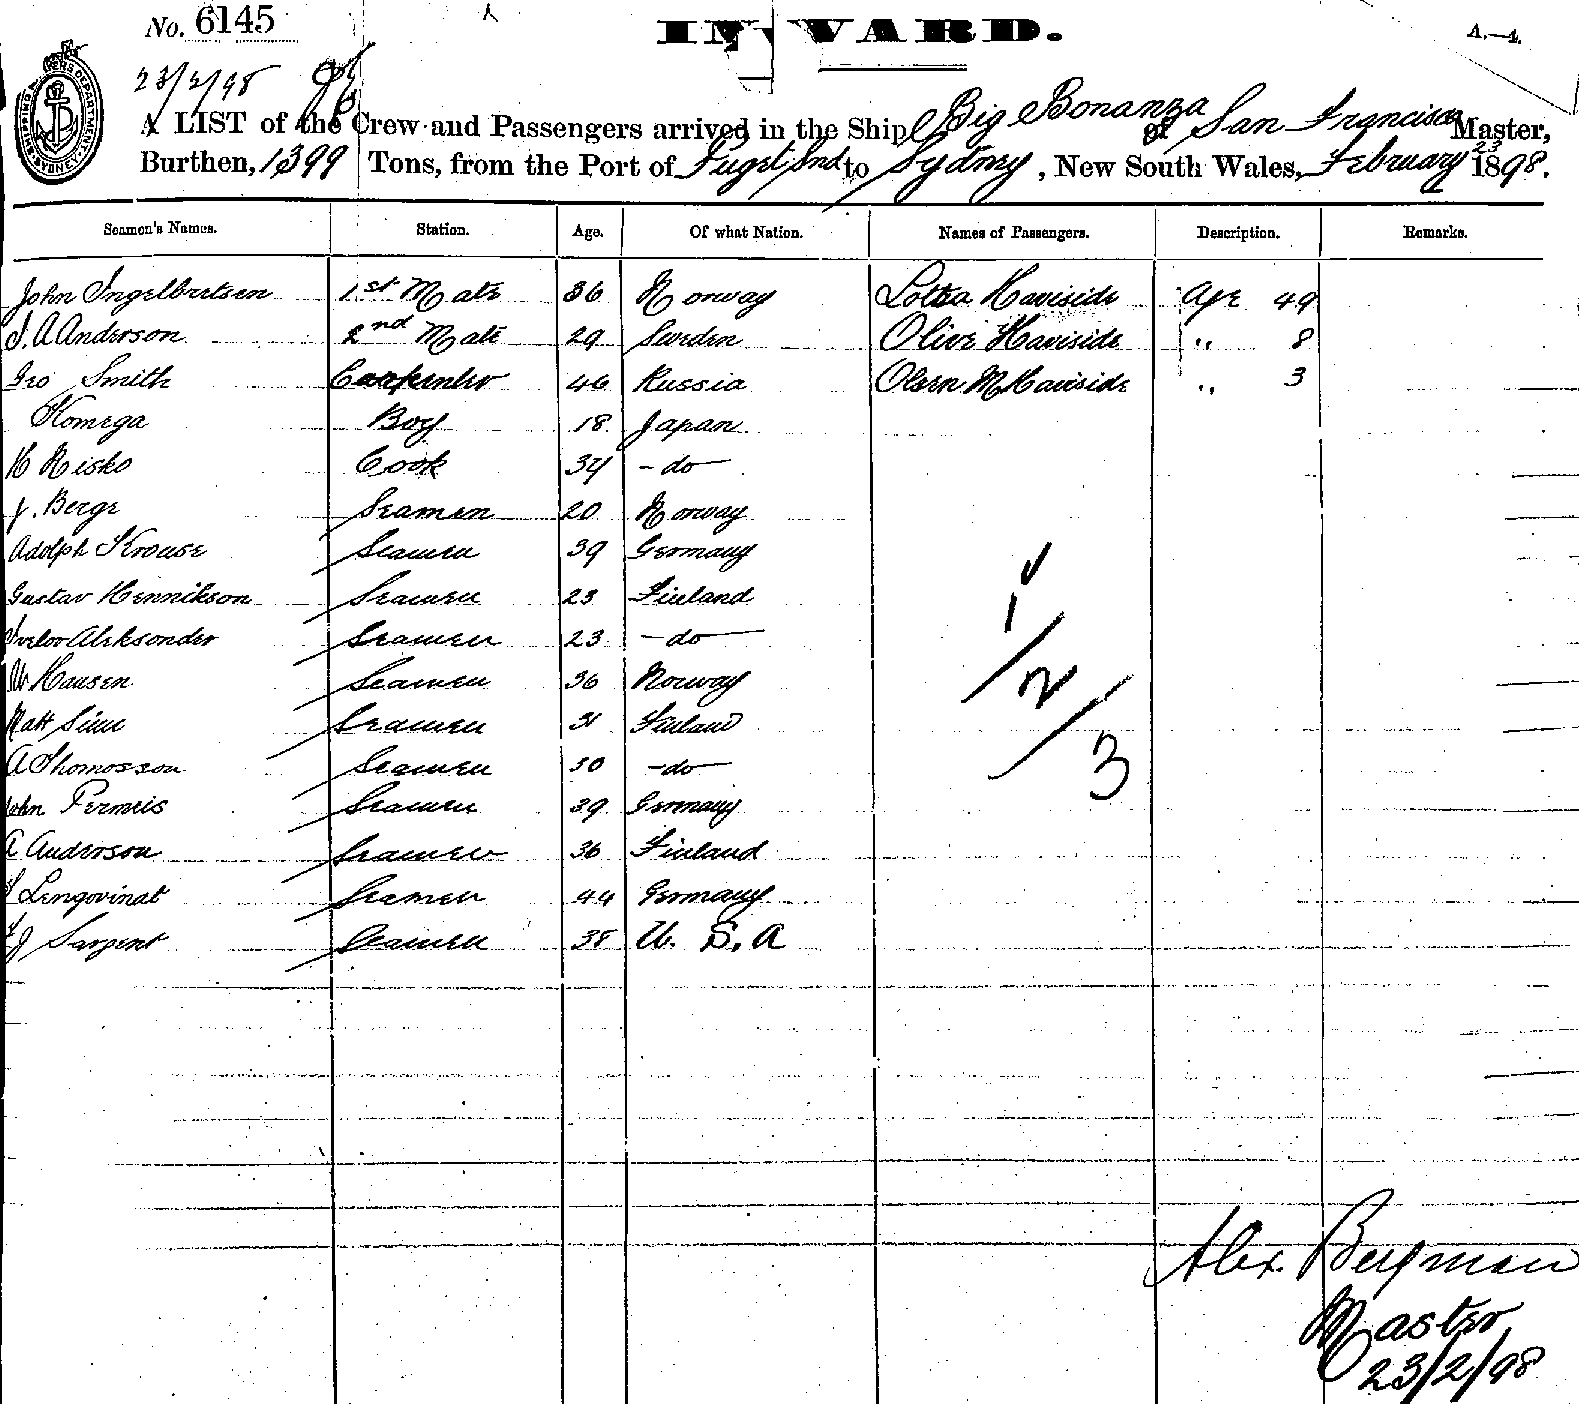 No. 6145
INWARD.
A.—4.
23/2/98
A LIST of the Crew and Passengers arrived in the Ship Big Bonanza of San Francisco Master,
Burthen, 1399 Tons, from the Port of Puget Snd to Sydney, New South Wales, February 23 1898.
Seamen's Names. Station. Age. Of what Nation. Names of Passengers. Description. Remarks.
John Ingelbretsen 1st Mate 36 Norway Lotta Haviside Age 49
J. A Anderson 2nd Mate 29 Sweden Olive Haviside " 8
Geo Smith Carpenter 46 Russia M Haviside " 3
Komega Boy 18 Japan
H Nisko Cook 34 - do -
J. Berge Seamen 20 Norway
Adolph Krouse Seamen 39 Germany
Gustav Hennikson Seamen 23 Finland
Aleksonder Seamen 23 - do -
Hansen Seamen 36 Norway
Matt Sinn Seamen 31 Finland
A Thomosson Seamen 30 - do -
John Seamen 39 Germany
A Anderson Seamen 36 Finland
Lengovinat Seamen 44 Germany
J Sargent Seamen 38 U. S. A
1/2/3
Alex. Bergman
Master
23/2/98